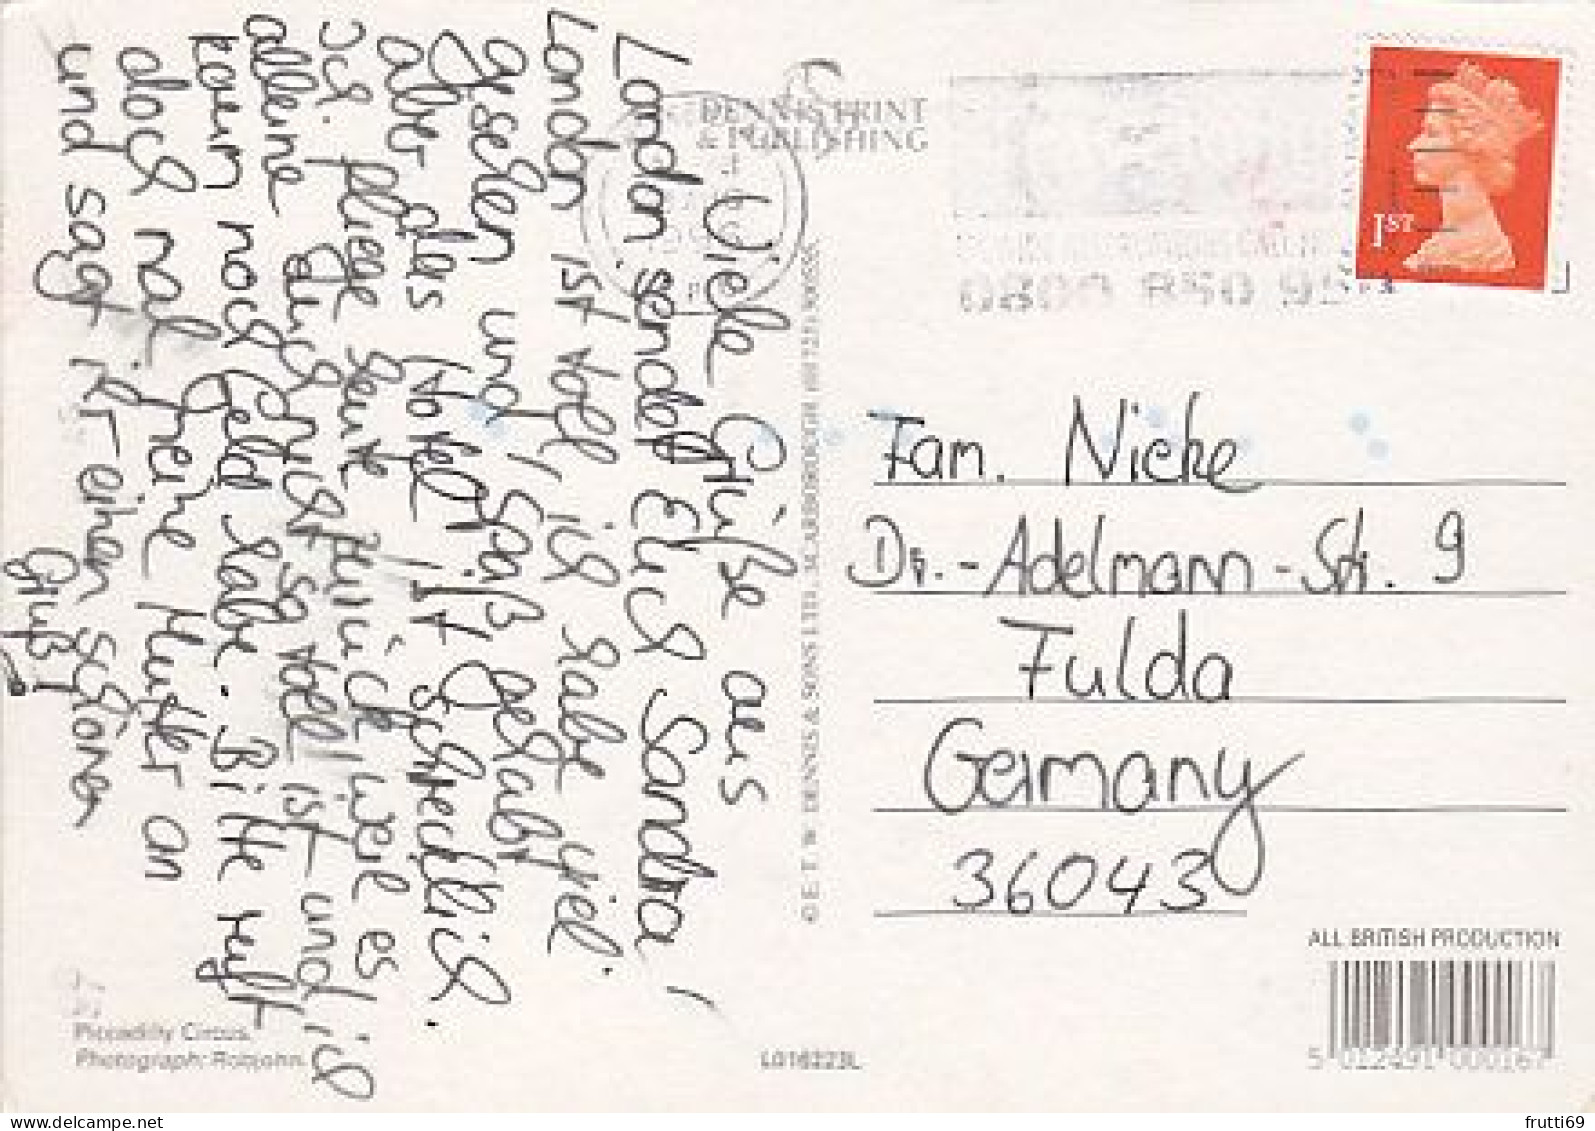 Viele Grüße aus
London sendet Euch Sandra,
London ist toll, ich habe viel
gesehen und Spaß gehabt
aber das Hotel ist schrecklich.
Ich fliege heute zurück, weil es
alleine auch nicht so toll ist und ich
kaum noch Geld habe. Bitte ruft
doch mal meine Mutter an
und sagt ihr einen schönen
Gruß!
DENNIS PRINT
& PUBLISHING
0800 850 95
1ST
© E. T. W. DENNIS & SONS LTD., SCARBOROUGH
Fam. Nicke
Dr.-Adelmann-Str. 9
Fulda
Germany
36043
Piccadilly Circus.
Photograph: Robjohn.
L016223L
ALL BRITISH PRODUCTION
5 012491 000167
frutti69